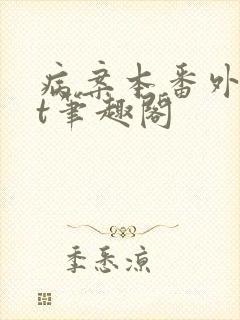 病案本番外
t笔趣阁
季悉凉